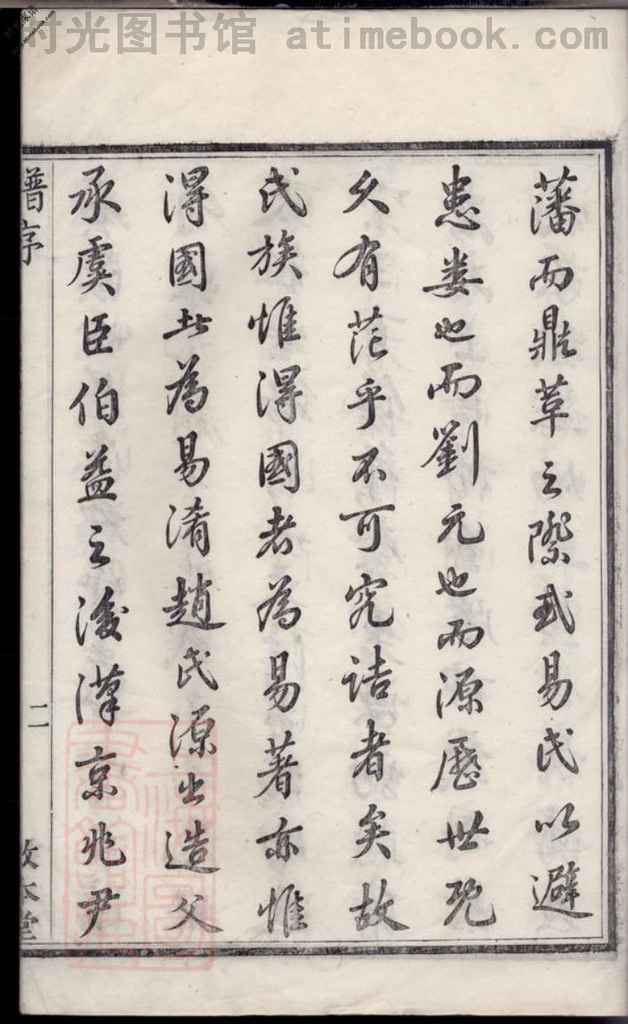 时光图书馆 atimebook.com
藩而鼎革之際或易氏以避
患婁也而劉元也而源歷世既
久有茫乎不可究詰者矣故
氏族惟得國者為易著亦惟
得國北為易淆趙氏源出造父
承虞臣伯益之後漢京兆尹
譜序
二
敦本堂